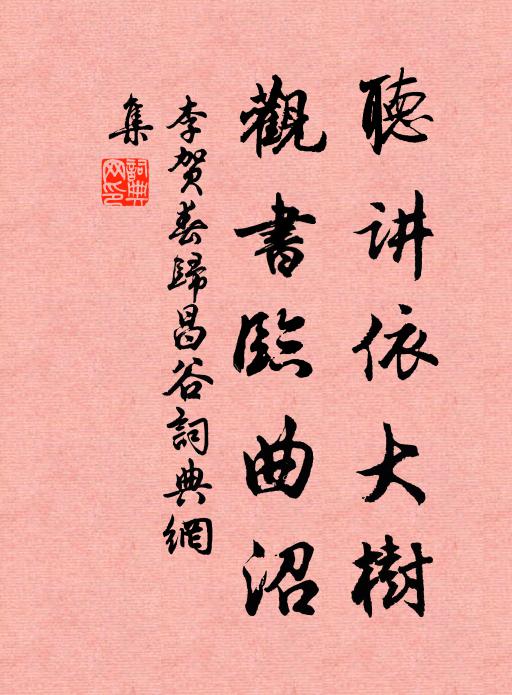 聽讲依大樹
觀書臨曲沼
李贺春歸昌谷詞典網
集
詞典
网印